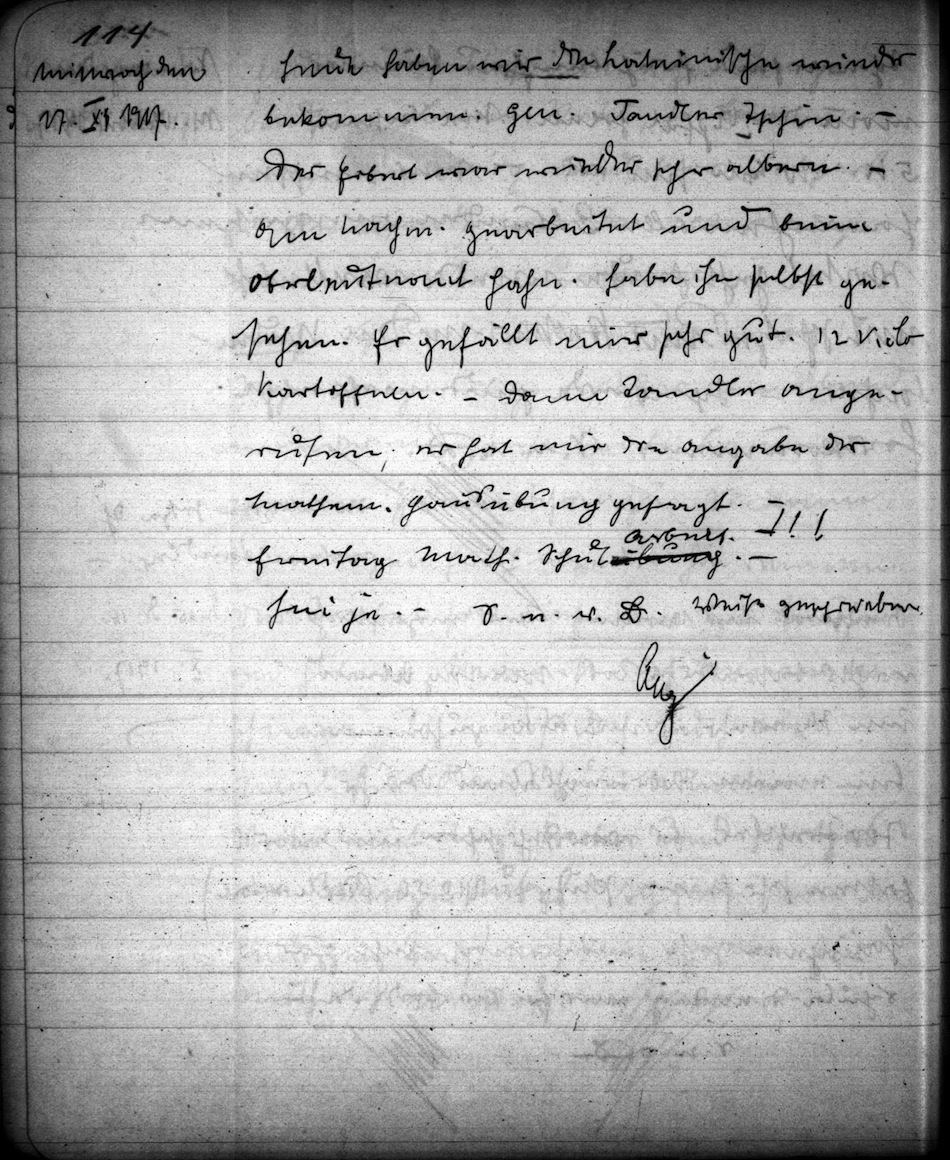 114
Mittwoch den
17. XI. 1917.
Heute haben wir die Lateinische wieder
bekommen. Gen. Tandler –
Der Erbert war wieder sehr albern. –
Am Nachm. gearbeitet und beim
Oberleutnant Hahn. Habe ihn selbst ge-
sehen. Er gefällt mir sehr gut. 12 Kilo
Kartoffeln. – Dann Tandler ange-
rufen; er hat mir die Angabe der
Mathem. Hausübung gesagt. – !!!
Freitag Math. Schulübung arbeit. –
S. n. v. B. Weiß geschrieben.